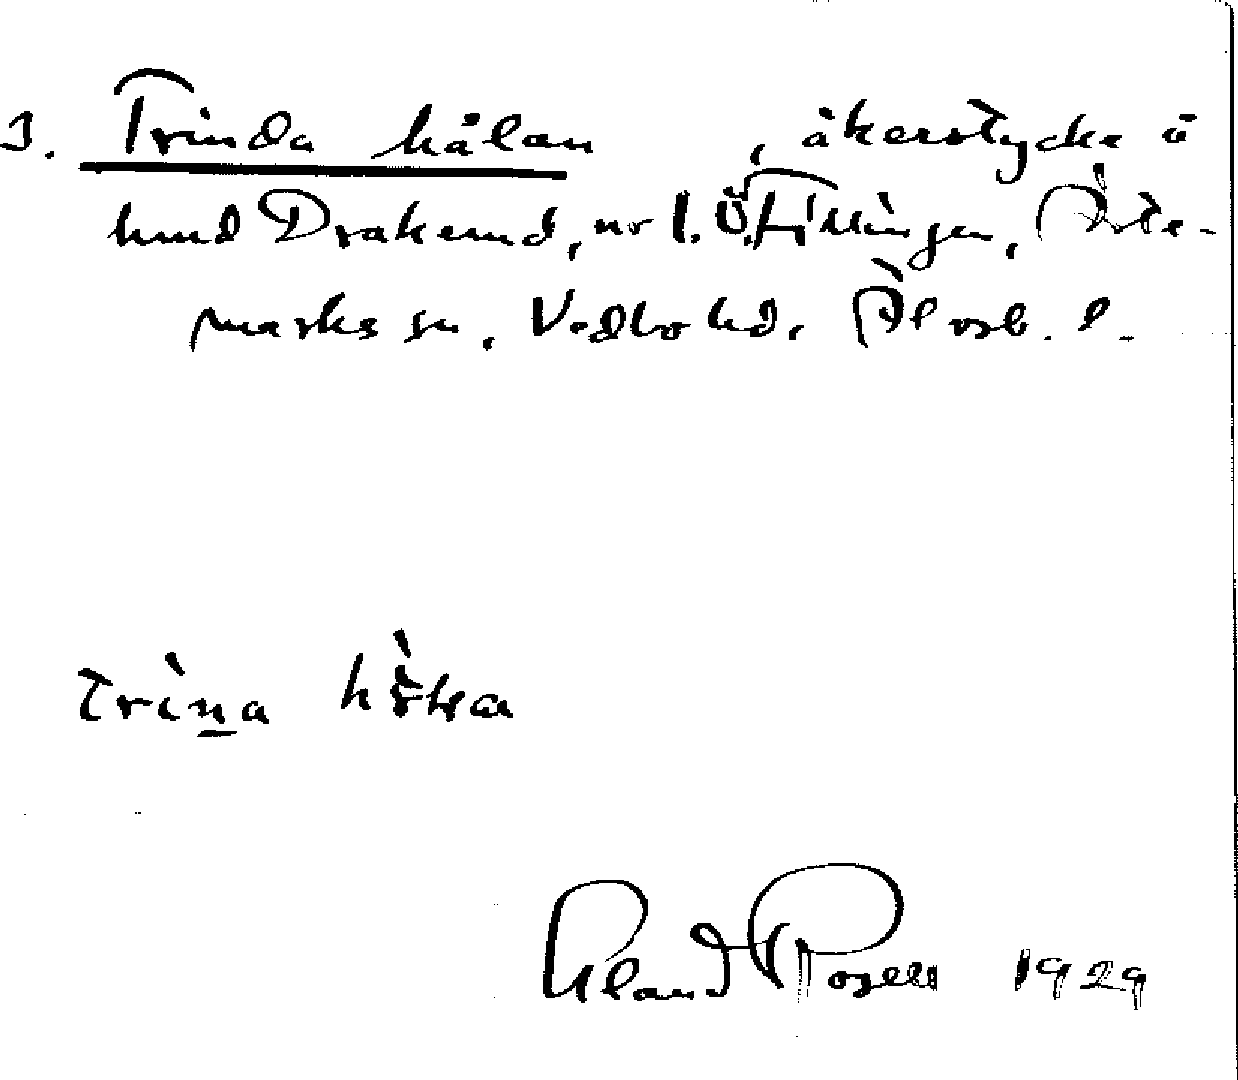 3. Trinda hålan , åkerstycke å
hmd Drakemd, nr 1. Ö. Tillingen, Ärte-
marks sn, Vedbo hd. Älvsb. l.
trìna hò̀ɫa
Erland Rosell 1929